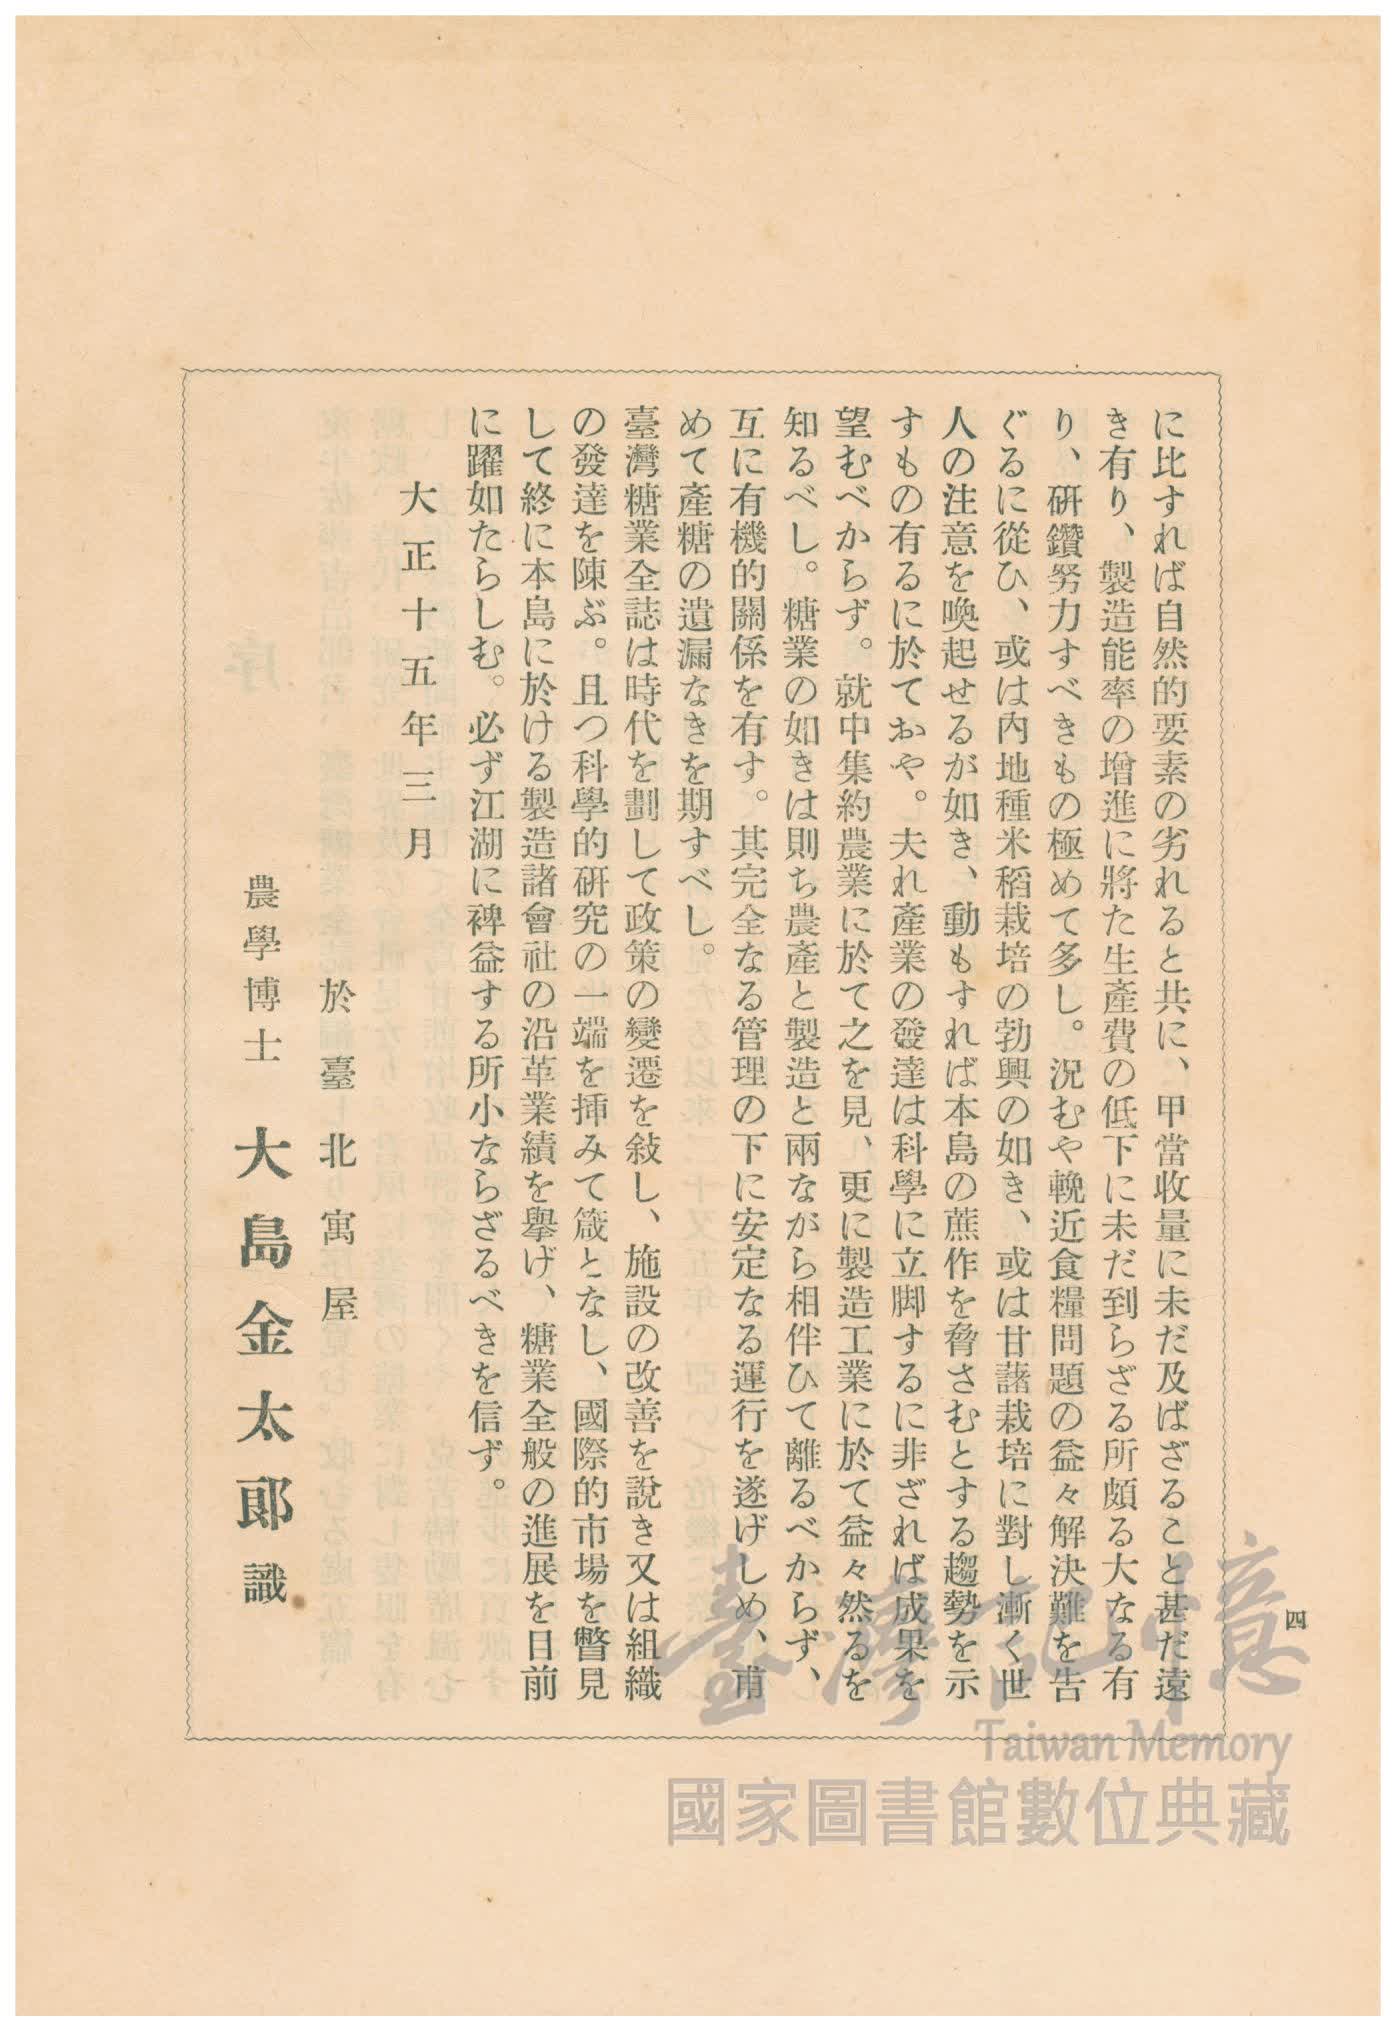 に比すれば自然的要素の劣れると共に、甲當收量に未だ及ばざること甚だ遠
き有り、製造能率の增進に將た生產費の低下に未だ到らざる所頗る大なる有
り、硏鑽努力すべきもの極めて多し。況むや輓近食糧問題の益々解決難を告
ぐるに從ひ、或は內地種米稻栽培の勃興の如き、或は甘藷栽培に對し漸く世
人の注意を喚起せるが如き、動もすれば本島の蔗作を脅さむとする趨勢を示
すもの有るに於ておや。夫れ產業の發達は科學に立脚するに非ざれば成果を
望むべからず。就中集約農業に於て之を見、更に製造工業に於て益々然るを
知るべし。糖業の如きは則ち農產と製造と兩ながら相伴ひて離るべからず、
互に有機的關係を有す。其完全なる管理の下に安定なる運行を遂げしめ、甫
めて產糖の遺漏なきを期すべし。
臺灣糖業全誌は時代を劃して政策の變遷を敍し、施設の改善を說き又は組織
の發達を陳ぶ。且つ科學的硏究の一端を揷みて箴となし、國際的市場を瞥見
して終に本島に於ける製造諸會社の沿革業績を擧げ、糖業全般の進展を目前
に躍如たらしむ。必ず江湖に裨益する所小ならざるべきを信ず。
大正十五年三月
於臺北寓屋
農學博士 大島金太郎識
四
臺灣記憶
Taiwan Memory
國家圖書館數位典藏